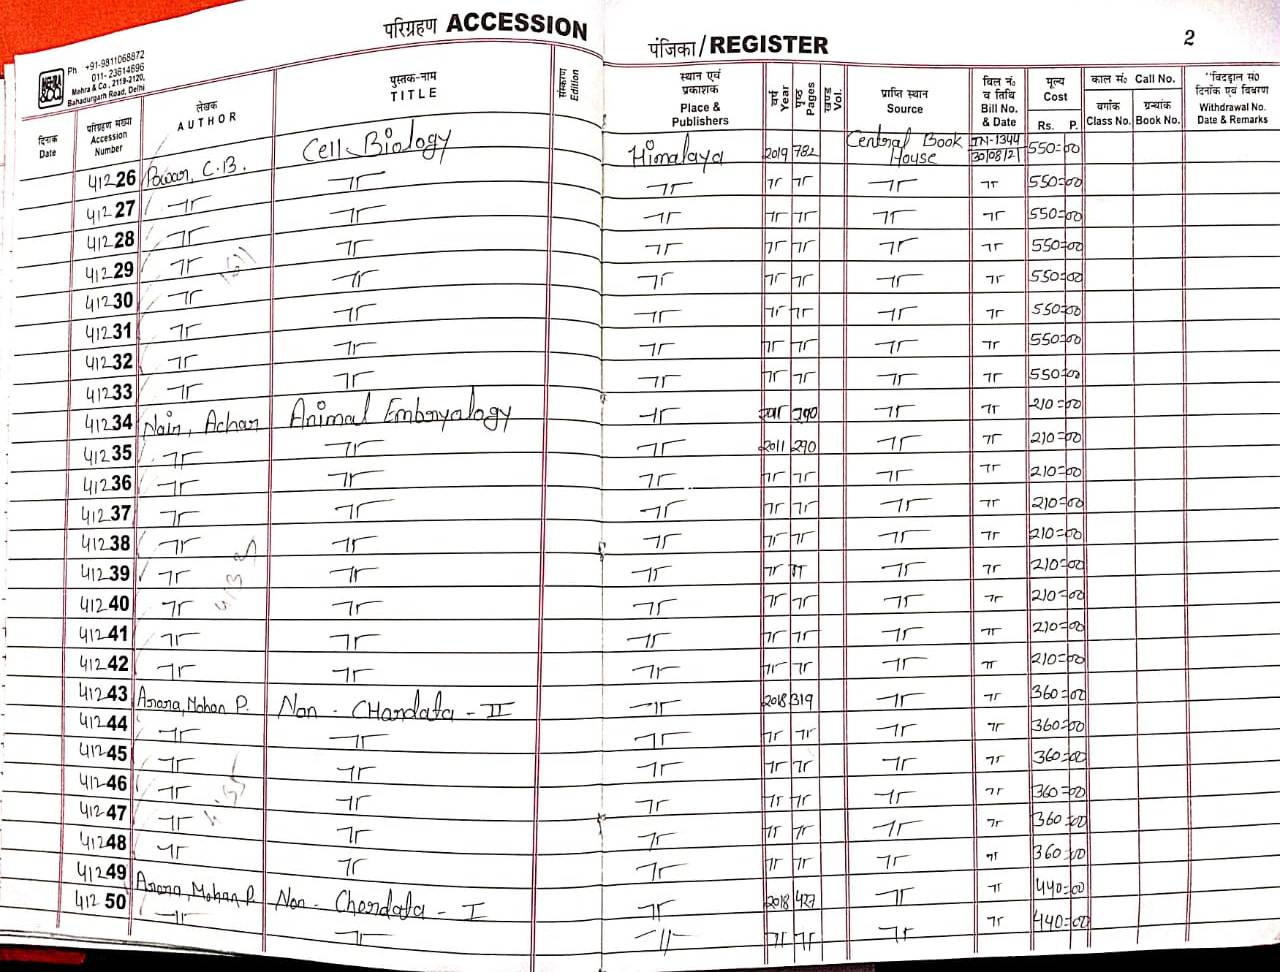 परिग्रहण ACCESSION पंजिका/REGISTER 2
MEHRA & CO. Ph +91-9811068872
011- 23614696
Mehra & Co., 2119-2120,
Bahadurgarh Road, Delhi
दिनांक Date | परिग्रहण संख्या Accession Number | लेखक AUTHOR | पुस्तक-नाम TITLE | संस्करण Edition | स्थान एवं प्रकाशक Place & Publishers | वर्ष Year | पृष्ठ Pages | खण्ड Vol. | प्राप्ति स्थान Source | बिल नं. व तिथि Bill No. & Date | मूल्य Cost Rs. P. | काल सं० Call No. वर्गांक Class No. ग्रन्थांक Book No. | Withdrawal No. Date & Remarks
41226 Powar, C.B. Cell Biology Himalaya 2019 782 Central Book House IN-1344 30/08/21 550=00
41227 〃 〃 〃 〃 〃 〃 〃 550=00
41228 〃 〃 〃 〃 〃 〃 〃 550=00
41229 〃 〃 〃 〃 〃 〃 〃 550=00
41230 〃 〃 〃 〃 〃 〃 〃 550=00
41231 〃 〃 〃 〃 〃 〃 〃 550=00
41232 〃 〃 〃 〃 〃 〃 〃 550=00
41233 〃 〃 〃 〃 〃 〃 〃 550=00
41234 Nair, Achar Animal Embryology 〃 290 〃 〃 210=00
41235 〃 〃 〃 2011 290 〃 〃 210=00
41236 〃 〃 〃 〃 〃 〃 〃 210=00
41237 〃 〃 〃 〃 〃 〃 〃 210=00
41238 〃 〃 〃 〃 〃 〃 〃 210=00
41239 〃 〃 〃 〃 〃 〃 〃 210=00
41240 〃 〃 〃 〃 〃 〃 〃 210=00
41241 〃 〃 〃 〃 〃 〃 〃 210=00
41242 〃 〃 〃 〃 〃 〃 〃 210=00
41243 Arora, Mohan P. Non - CHordata - II 〃 2018 319 〃 〃 360=00
41244 〃 〃 〃 〃 〃 〃 〃 360=00
41245 〃 〃 〃 〃 〃 〃 〃 360=00
41246 〃 〃 〃 〃 〃 〃 〃 360=00
41247 〃 〃 〃 〃 〃 〃 〃 360=00
41248 〃 〃 〃 〃 〃 〃 〃 360=00
41249 Arora, Mohan P. Non - Chordata - I 〃 2018 427 〃 〃 440=00
41250 〃 〃 〃 〃 〃 〃 〃 440=00